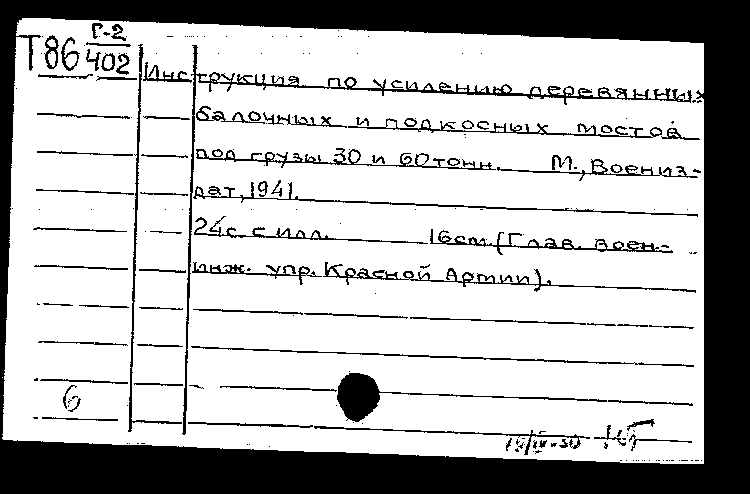 Г-2
Т86 402
Инструкция по усилению деревянных
балочных и подкосных мостов
под грузы 30 и 60 тонн. М., Воениз-
дат, 1941.
24с. с илл. 16см. (Глав. воен.-
инж. упр. Красной Армии).
6